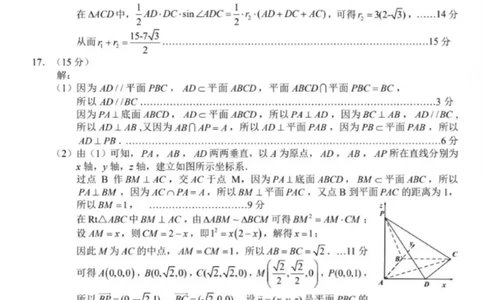 在ΔACD中, 1/2 AD·DC·sin∠ADC = 1/2 r₂·(AD+DC+AC), 可得r₂=3(2-√3), ……14分
从而r₁+r₂=(15-7√3)/2 ……………………15分
17. (15分)
解:
(1)因为AD//平面PBC, AD⊂平面ABCD, 平面ABCD⋂平面PBC=BC,
所以AD//BC ……………………3分
因为PA⊥底面ABCD, AD⊂平面ABCD, 所以PA⊥AD, 因为BC⊥AB, AD//BC,
所以AD⊥AB,又因为AB⋂AP=A, 所以AD⊥平面PAB, 因为PB⊂平面PAB, 所以
AD⊥PB. ……………………6分
(2)由(1)可知, PA, AB, AD两两垂直, 以A为原点, AD, AB, AP所在直线分别为
x轴, y轴, z轴, 建立如图所示坐标系.
过点B作BM⊥AC, 交AC于点M, 因为PA⊥底面ABCD, BM⊂平面ABC, 所以
PA⊥BM, 因为AC⋂PA=A, 所以BM⊥平面PAC, 又点B到平面PAC的距离为1,
所以BM=1, ……………………9分
在Rt△ABC中BM⊥AC, 由ΔABM~ΔBCM可得BM²=AM·CM;
设AM=x, 则CM=2-x, 即1²=x(2-x), 解得x=1;
因此M为AC的中点, AM=CM=1, 所以AB=BC=√2. …11分
可得A(0,0,0), B(0,√2,0), C(√2,√2,0), M(√2/2,√2/2,0), P(0,0,1),
z
P
y
B
C
A
D
x